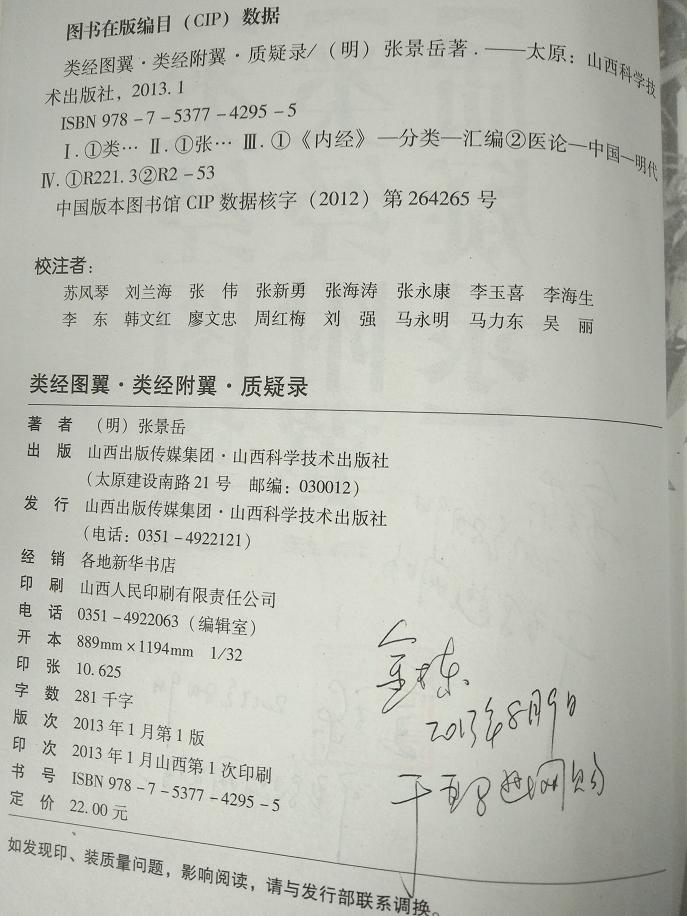 图书在版编目（CIP）数据
类经图翼·类经附翼·质疑录/（明）张景岳著．——太原：山西科学技
术出版社，2013.1
ISBN 978-7-5377-4295-5
Ⅰ.①类… Ⅱ.①张… Ⅲ.①《内经》—分类—汇编②医论—中国—明代
Ⅳ.①R221.3②R2-53
中国版本图书馆CIP数据核字（2012）第264265号
校注者：
苏凤琴 刘兰海 张 伟 张新勇 张海涛 张永康 李玉喜 李海生
李 东 韩文红 廖文忠 周红梅 刘 强 马永明 马力东 吴 丽
类经图翼·类经附翼·质疑录
著 者 （明）张景岳
出 版 山西出版传媒集团·山西科学技术出版社
（太原建设南路21号 邮编：030012）
发 行 山西出版传媒集团·山西科学技术出版社
（电话：0351-4922121）
经 销 各地新华书店
印 刷 山西人民印刷有限责任公司
电 话 0351-4922063（编辑室）
开 本 889mm×1194mm 1/32
印 张 10.625
字 数 281千字
版 次 2013年1月第1版
印 次 2013年1月山西第1次印刷
书 号 ISBN 978-7-5377-4295-5
定 价 22.00元
金栋
2013年8月9日
于 网购
如发现印、装质量问题，影响阅读，请与发行部联系调换。